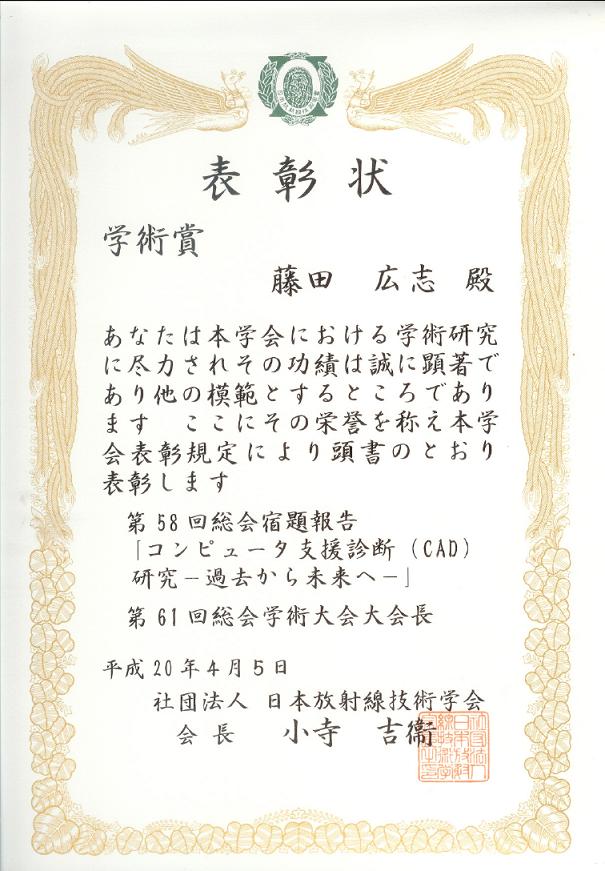 表彰状
学術賞
藤田 広志 殿
あなたは本学会における学術研究
に尽力されその功績は誠に顕著で
あり他の模範とするところであり
ます ここにその栄誉を称え本学
会表彰規定により頭書のとおり
表彰します
第58回総会宿題報告
「コンピュータ支援診断(CAD)
研究－過去から未来へ－」
第61回総会学術大会大会長
平成20年4月5日
社団法人 日本放射線技術学会
会長 小寺 吉衞